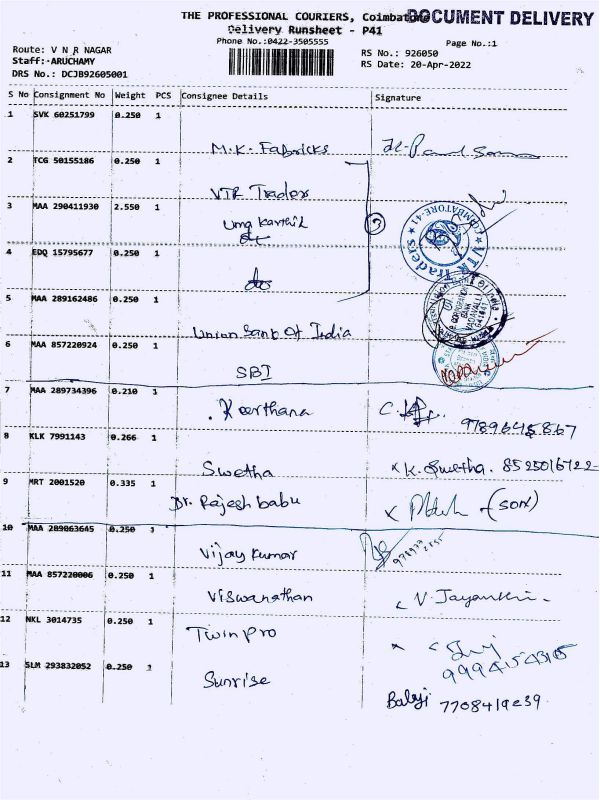 THE PROFESSIONAL COURIERS, Coimbatore
DOCUMENT DELIVERY
Delivery Runsheet - P41
Phone No.:0422-3505555
Page No.:1
Route: V N R NAGAR
RS No.: 926050
Staff: ARUCHAMY
RS Date: 20-Apr-2022
DRS No.: DCJB92605001
S No Consignment No Weight PCS Consignee Details Signature
1 SVK 60251799 0.250 1
M.K. Fabricks
2 TCG 50155186 0.250 1
VTR Trades
3 MAA 290411930 2.550 1
Uma Karthik
3
COIMBATORE-41 ★ VTR Traders ★
4 EDQ 15795677 0.250 1
do
5 MAA 289162486 0.250 1
Union Bank Of India
6 MAA 857220924 0.250 1
SBI
7 MAA 289734396 0.210 1
Keerthana
8 KLK 7991143 0.266 1
Swetha x K. Swetha. 8525016722
9 MRT 2001520 0.335 1
Dr. Rajesh babu (SON)
10 MAA 289063645 0.250 1
Vijay Kumar
11 MAA 857220006 0.250 1
Viswanathan
12 NKL 3014735 0.250 1
Twinpro
13 SLM 293832052 0.250 1
Sunrise
Balaji